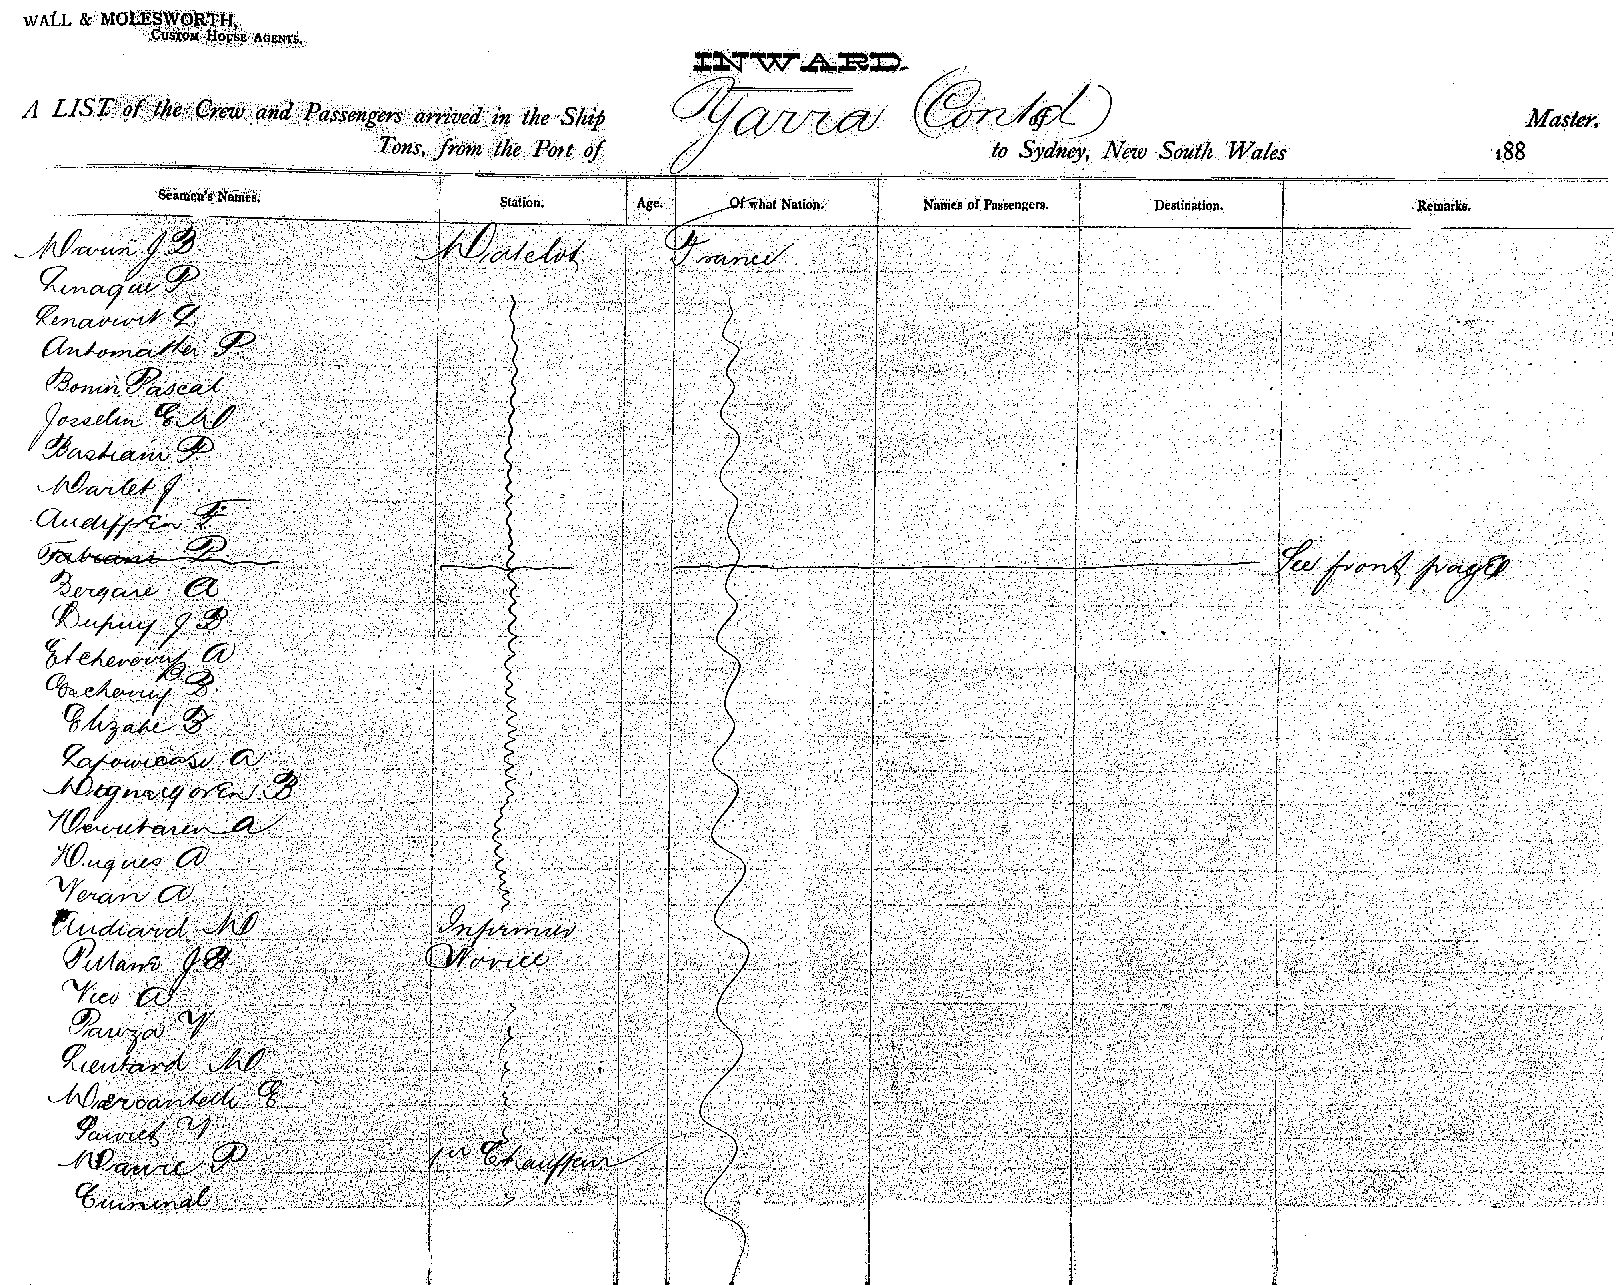 WALL & MOLESWORTH,
CUSTOM HOUSE AGENTS.
INWARD.
A LIST of the Crew and Passengers arrived in the Ship Yarra (Contd) Master.
Tons, from the Port of to Sydney, New South Wales 188
Seamen's Names. Station. Age. Of what Nation. Names of Passengers. Destination. Remarks.
Marin J B Matelot France
P
Automatter P
Bonin Pascal
Josselin E M
Bastiani P
Martet J
Audiffren F
Fabiani P See front page
Bergase A
Dupuy J B
Etcheverry A
B
Elizabe B
A
B
A
Hugues A
Veran A
Audiard M Infirmier
J B Novice
Vico A
Pawza V
Lieutard M
Mercantelli E
V
Maurie P 1er Chauffeur
Criminal